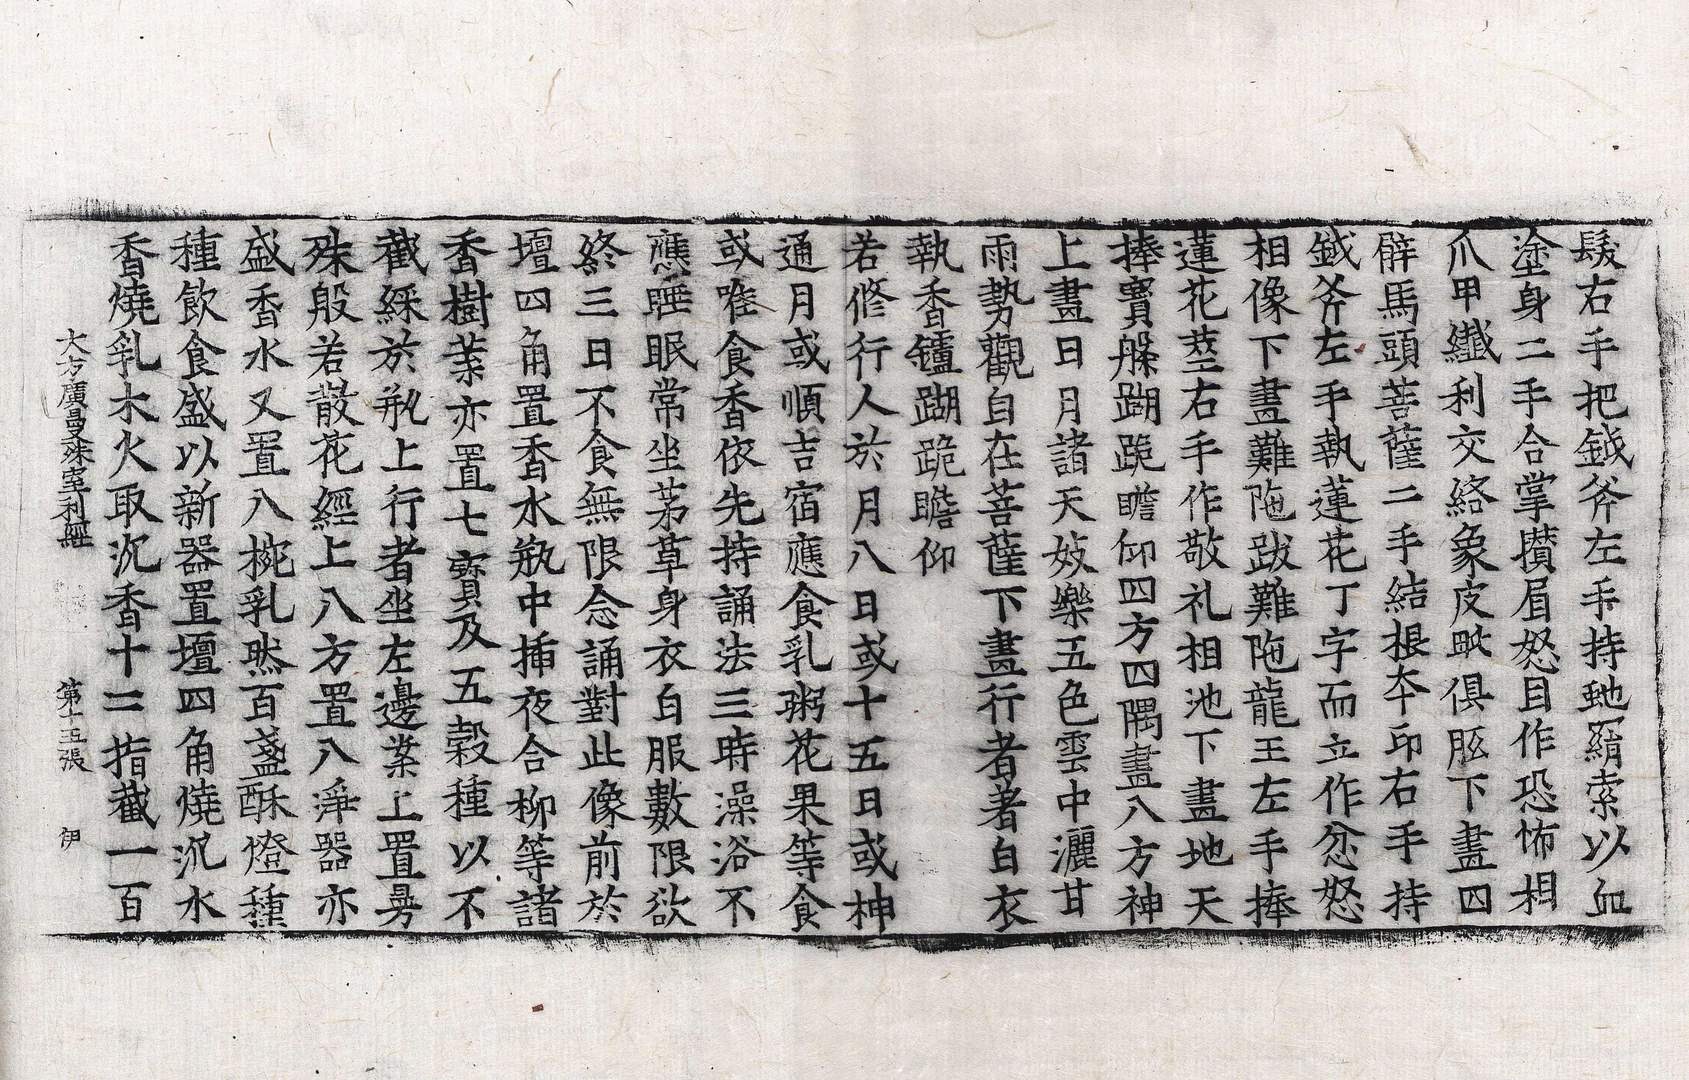 髮右手把鉞斧左手持虵羂索以血
塗身二手合掌攅眉怒目作恐怖相
爪甲纖利交絡象皮毗俱胝下畫四
臂馬頭菩薩二手結根夲印右手持
鉞斧左手執蓮花丁字而立作忿怒
相像下畫難陁跋難陁龍王左手捧
蓮花莖右手作敬礼相池下畫地天
捧寶槃蹦跪瞻仰四方四隅畫八方神
上畫日月諸天妓樂五色雲中灑甘
雨勢觀自在菩薩下畫行者著白衣
執香鑪蹦跪瞻仰
若修行人於月八日或十五日或神
通月或順吉宿應食乳粥花果等食
或唯食香香依先持誦法三時澡浴不
應睡眠常坐茅草身衣白服數限欲
終三日不食無限念誦對此像前於
壇四角置香水瓶中揷夜合柳等諸
香樹葉亦置七寶及五穀種以不
截綵於瓶上行者坐左邊案上置曼
殊般若散花經上八方置八淨器亦
盛香水又置八椀乳然百盞酥燈種
種飲食盛以新器置壇四角燒沉水
香燒乳木火取沉香十二指截一百
大方廣曼殊室利經 第十五張 伊